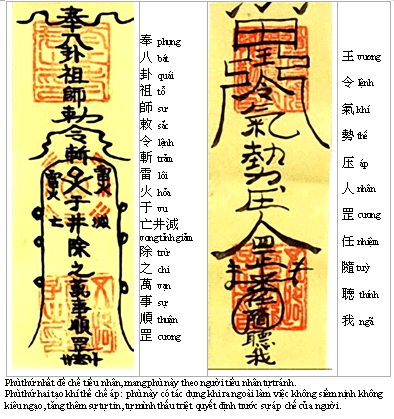 奉八卦祖師勅令斬
雷火
雷火
于井除之萬事順罡
奉 phụng
八 bát
卦 quái
祖 tổ
師 sư
敕 sắc
令 lệnh
斬 trảm
雷 lôi
火 hỏa
于 vu
亡井滅
vong tỉnh giảm
除 trừ
之 chi
萬 vạn
事 sự
順 thuận
罡 cương
王令氣勢压人罡任隨聽我
王 vương
令 lệnh
氣 khí
勢 thế
压 áp
人 nhân
罡 cương
任 nhiệm
隨 tuỳ
聽 thính
我 ngã
Phù thứ nhất để chế tiểu nhân, mang phù này theo người tiểu nhân tự tránh.
Phù thứ hai tạo khí thế chế áp: phù này có tác dụng khi ra ngoài làm việc không siểm nịnh không
kiêu ngạo, tăng thêm sự tự tin, tự mình thấu triệt quyết định trước sự áp chế của người.